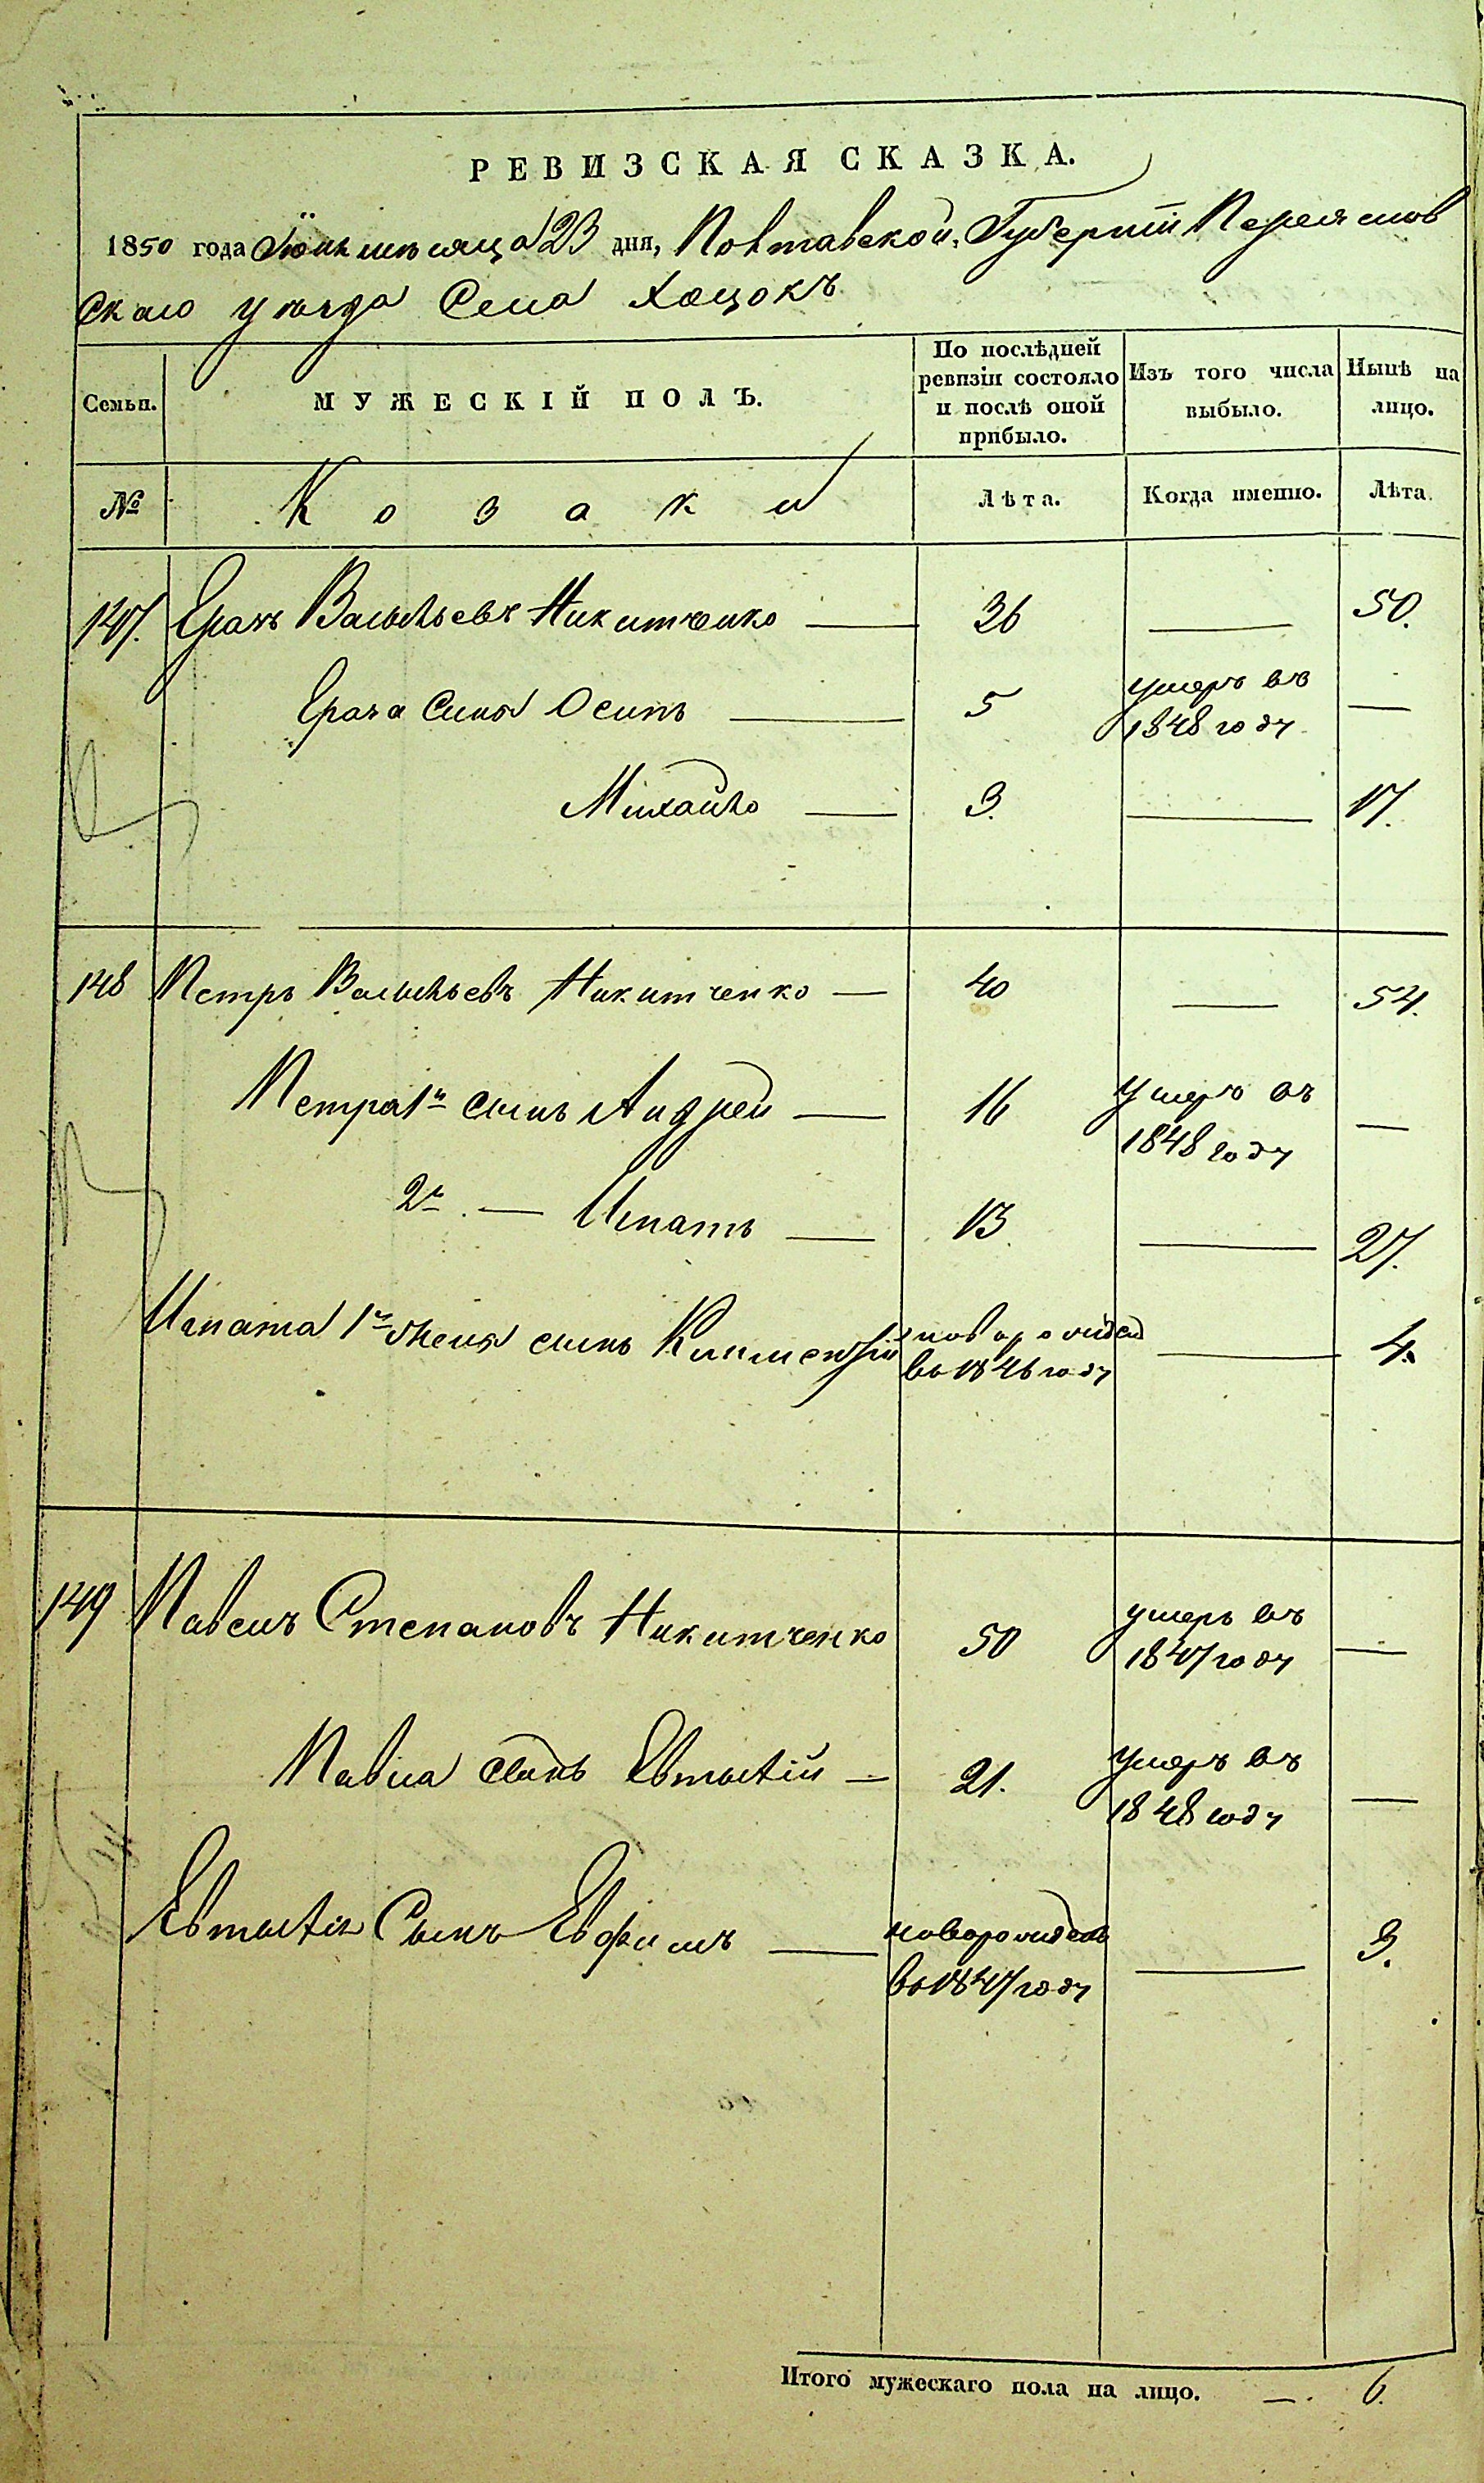 РЕВИЗСКАЯ СКАЗКА.
1850 года Іюня мѣсяца 23 дня, Полтавской Губерніи Переяслов
скаго уѣзда Села Хоцокъ
Семьи.
МУЖЕСКІЙ ПОЛЪ.
По послѣдней
ревизіи состояло
и послѣ оной
прибыло.
Изъ того числа
выбыло.
Нынѣ на
лицо.
№ Козаки Лѣта. Когда именно. Лѣта.
147. Васильевъ Никитченко — 36 — 50.
сынъ Осипъ — 5 умеръ въ —
1848 году
Михайло — 3. — 17.
148 Петръ Васильевъ Никитченко — 40 — 54.
Петра 1й сынъ Андрей — 16 умеръ въ —
1848 году
2й — Игнатъ — 13 — 27.
Игната 1й жены сынъ Климентій новорожден — 4.
въ 1846 году
149 Павелъ Степановъ Никитченко 50 умеръ въ —
1847 году
Павла сынъ Евтыхій — 21. умеръ въ —
1848 году
Евтыхія Сынъ Евфимъ — новорожден — 3.
въ 1847 году
Итого мужескаго пола на лицо. — 6.